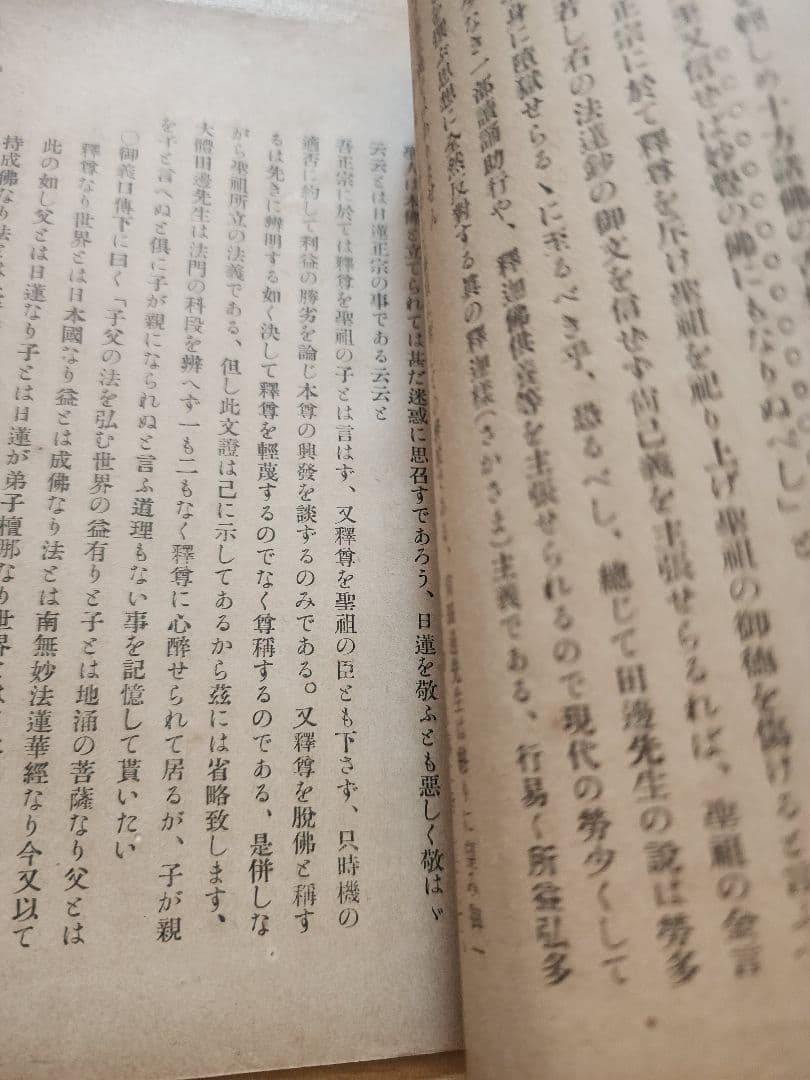 を頼しめ十方諸佛の
又信せば妙覺の佛にもなりぬべし」と
正宗に於て釋尊を斥け聖祖を祀り上げ聖祖の御徳を傷けると
若し右の法蓮鈔の御文を信せず尚己義を主張せらるれば、聖祖の金言
身に墮獄せらるゝに至るべき乎、恐るべし、總じて田邊先生の說は勞多
なき一部讀誦助行や、釋迦佛供養等を主張せられるので現代の勞少くして
思想に全然反對する眞の釋迦樣(さかさま)主義である、行易く所益弘多
本佛と立てられては甚だ迷惑に思召すであろう、日蓮を敬ふとも惡しく敬はゞ
云云とは日蓮正宗の事である云云と
吾正宗に於ては釋尊を聖祖の子とは言はず、又釋尊を聖祖の臣とも下さず、只時機の
適否に約して利益の勝劣を論じ本尊の興發を談ずるのみである。又釋尊を脫佛と稱す
るは先きに辨明する如く決して釋尊を輕蔑するのでなく尊稱するのである、是併しな
がら聖祖所立の法義である、但し此文證は己に示してあるから玆には省略致します、
大體田邊先生は法門の科段を辨へず一も二もなく釋尊に心醉せられて居るが、子が親
を子と言へぬと俱に子が親になられぬと言ふ道理もない事を記憶して貰いたい
〇御義口傳下に曰く「子父の法を弘む世界の益有りと子とは地涌の菩薩なり父とは
釋尊なり世界とは日本國なり益とは成佛なり法とは南無妙法蓮華經なり今又以て
此の如し父とは日蓮なり子とは日蓮が弟子檀那なり世界とは
持成佛なり法とは